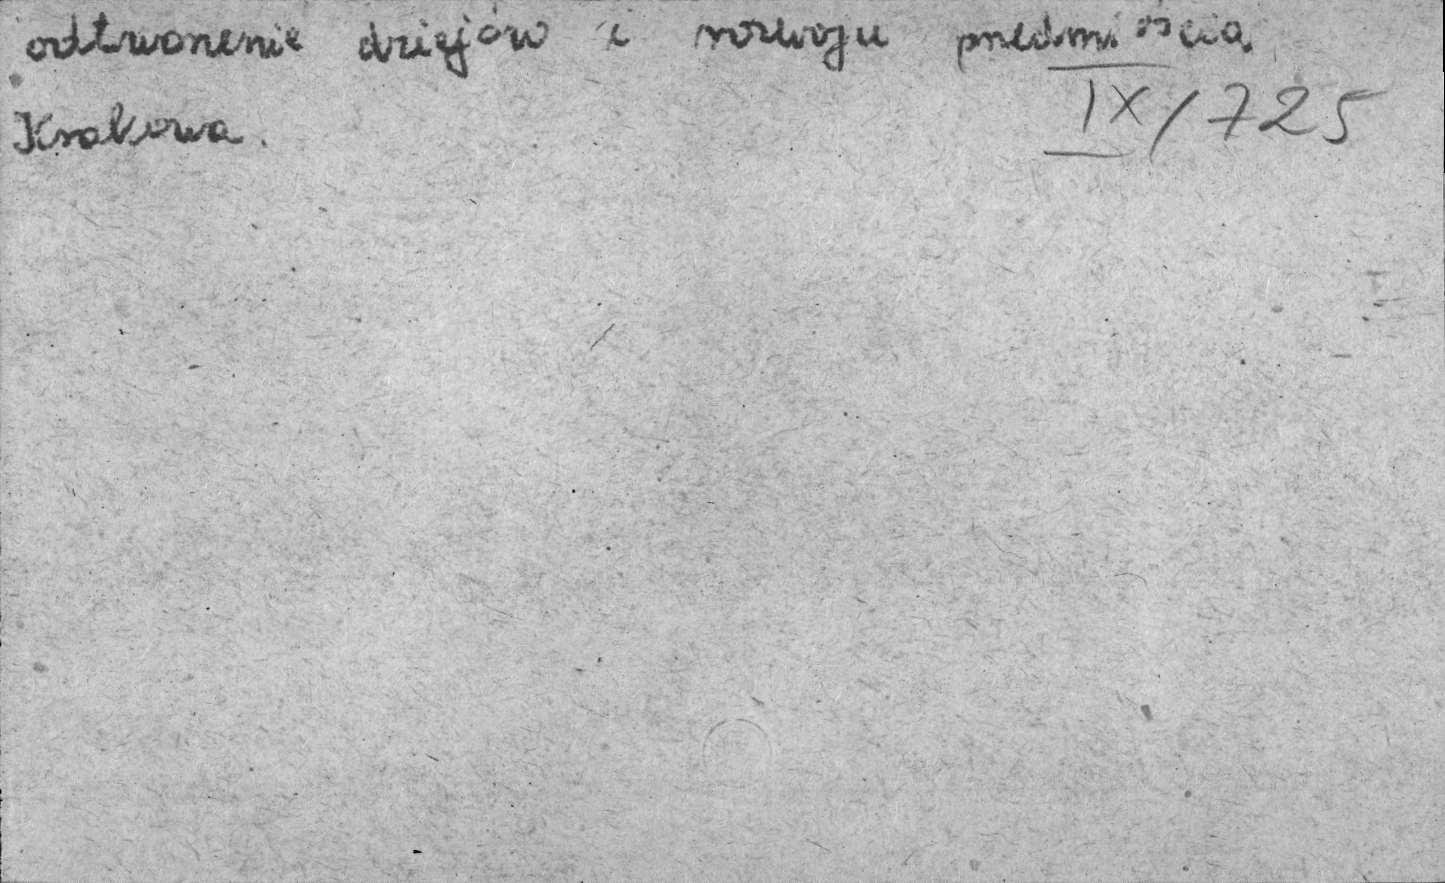 odtworzenie dziejów i rozwoju przedmieścia
Krakowa.
IX/725